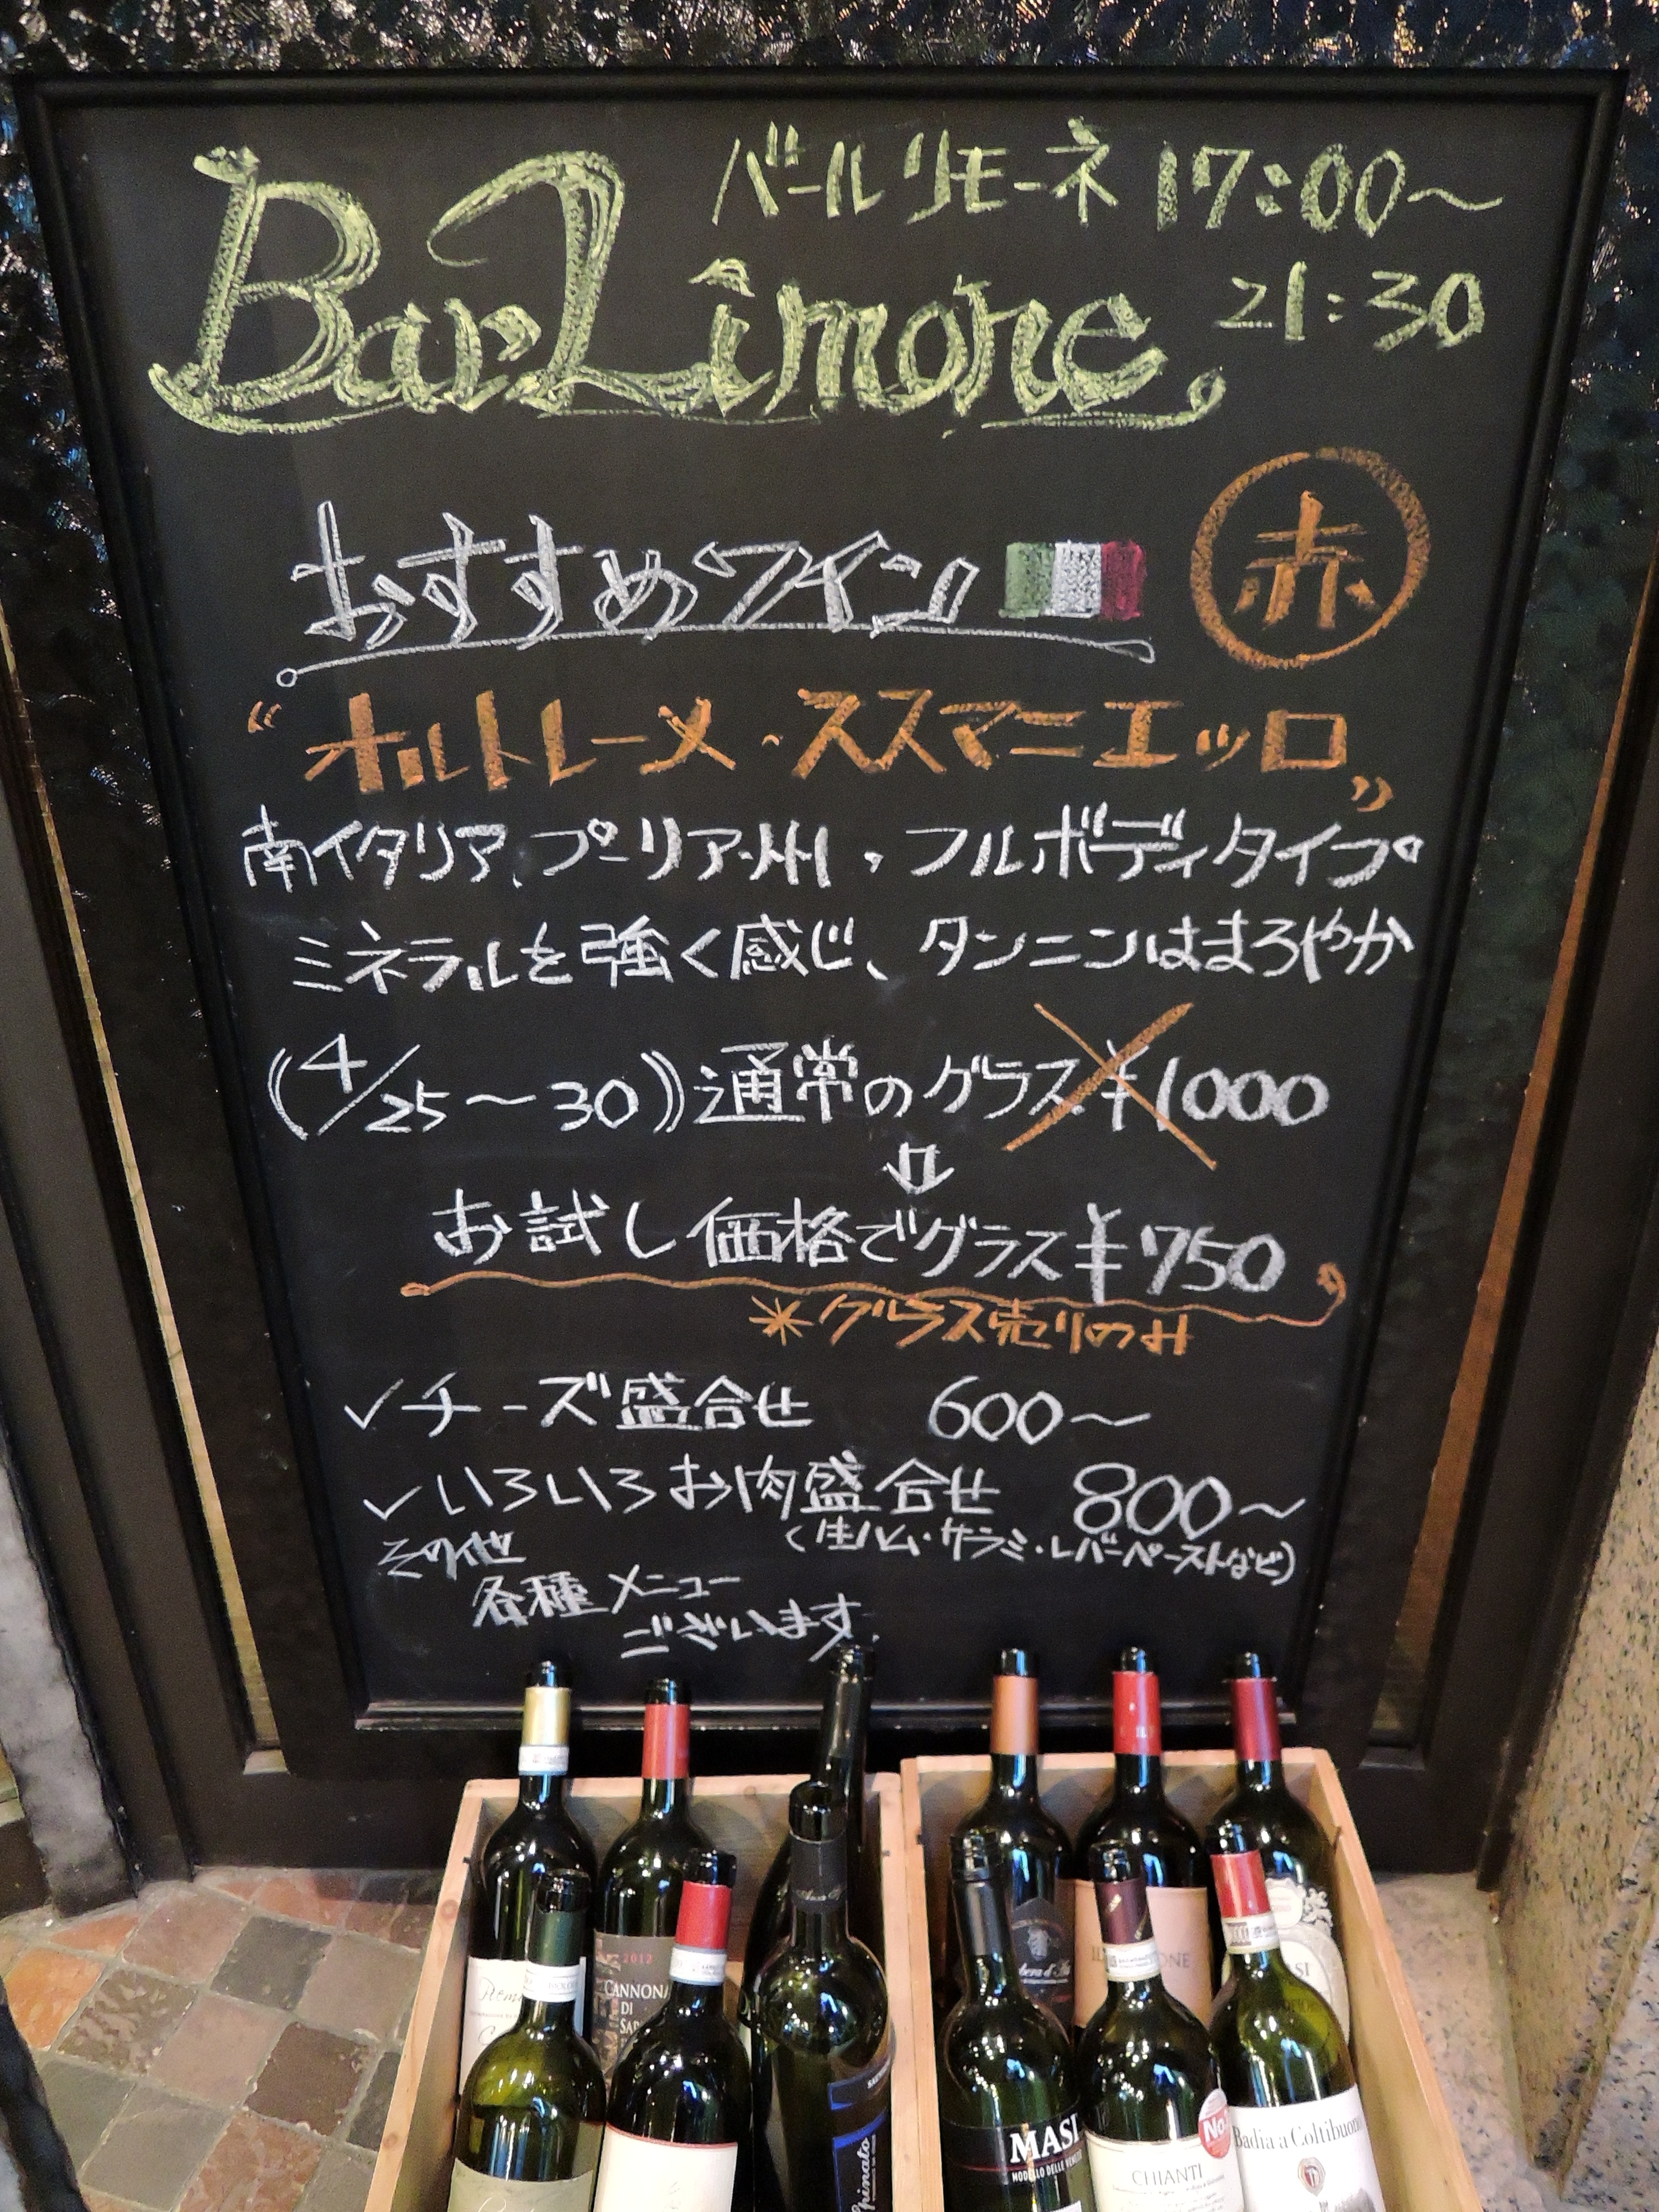 バール リモーネ 17:00～
21:30
Bar Limone
おすすめワイン
赤
“オルトレーメ・ススマニエッロ”
南イタリア、プーリア州，フルボディタイプ
ミネラルを強く感じ、タンニンはまろやか
(4/25～30)通常のグラス¥1000
お試し価格でグラス¥750
*グラス売りのみ
✓チーズ盛合せ 600～
✓いろいろお肉盛合せ 800～
(生ハム・サラミ・レバーペーストなど)
その他
各種メニュー
ございます。
2012
CANNONA
DI
SAR
MASI
MODELLO DELLE
CHIANTI
No.
Badia a Coltibuono